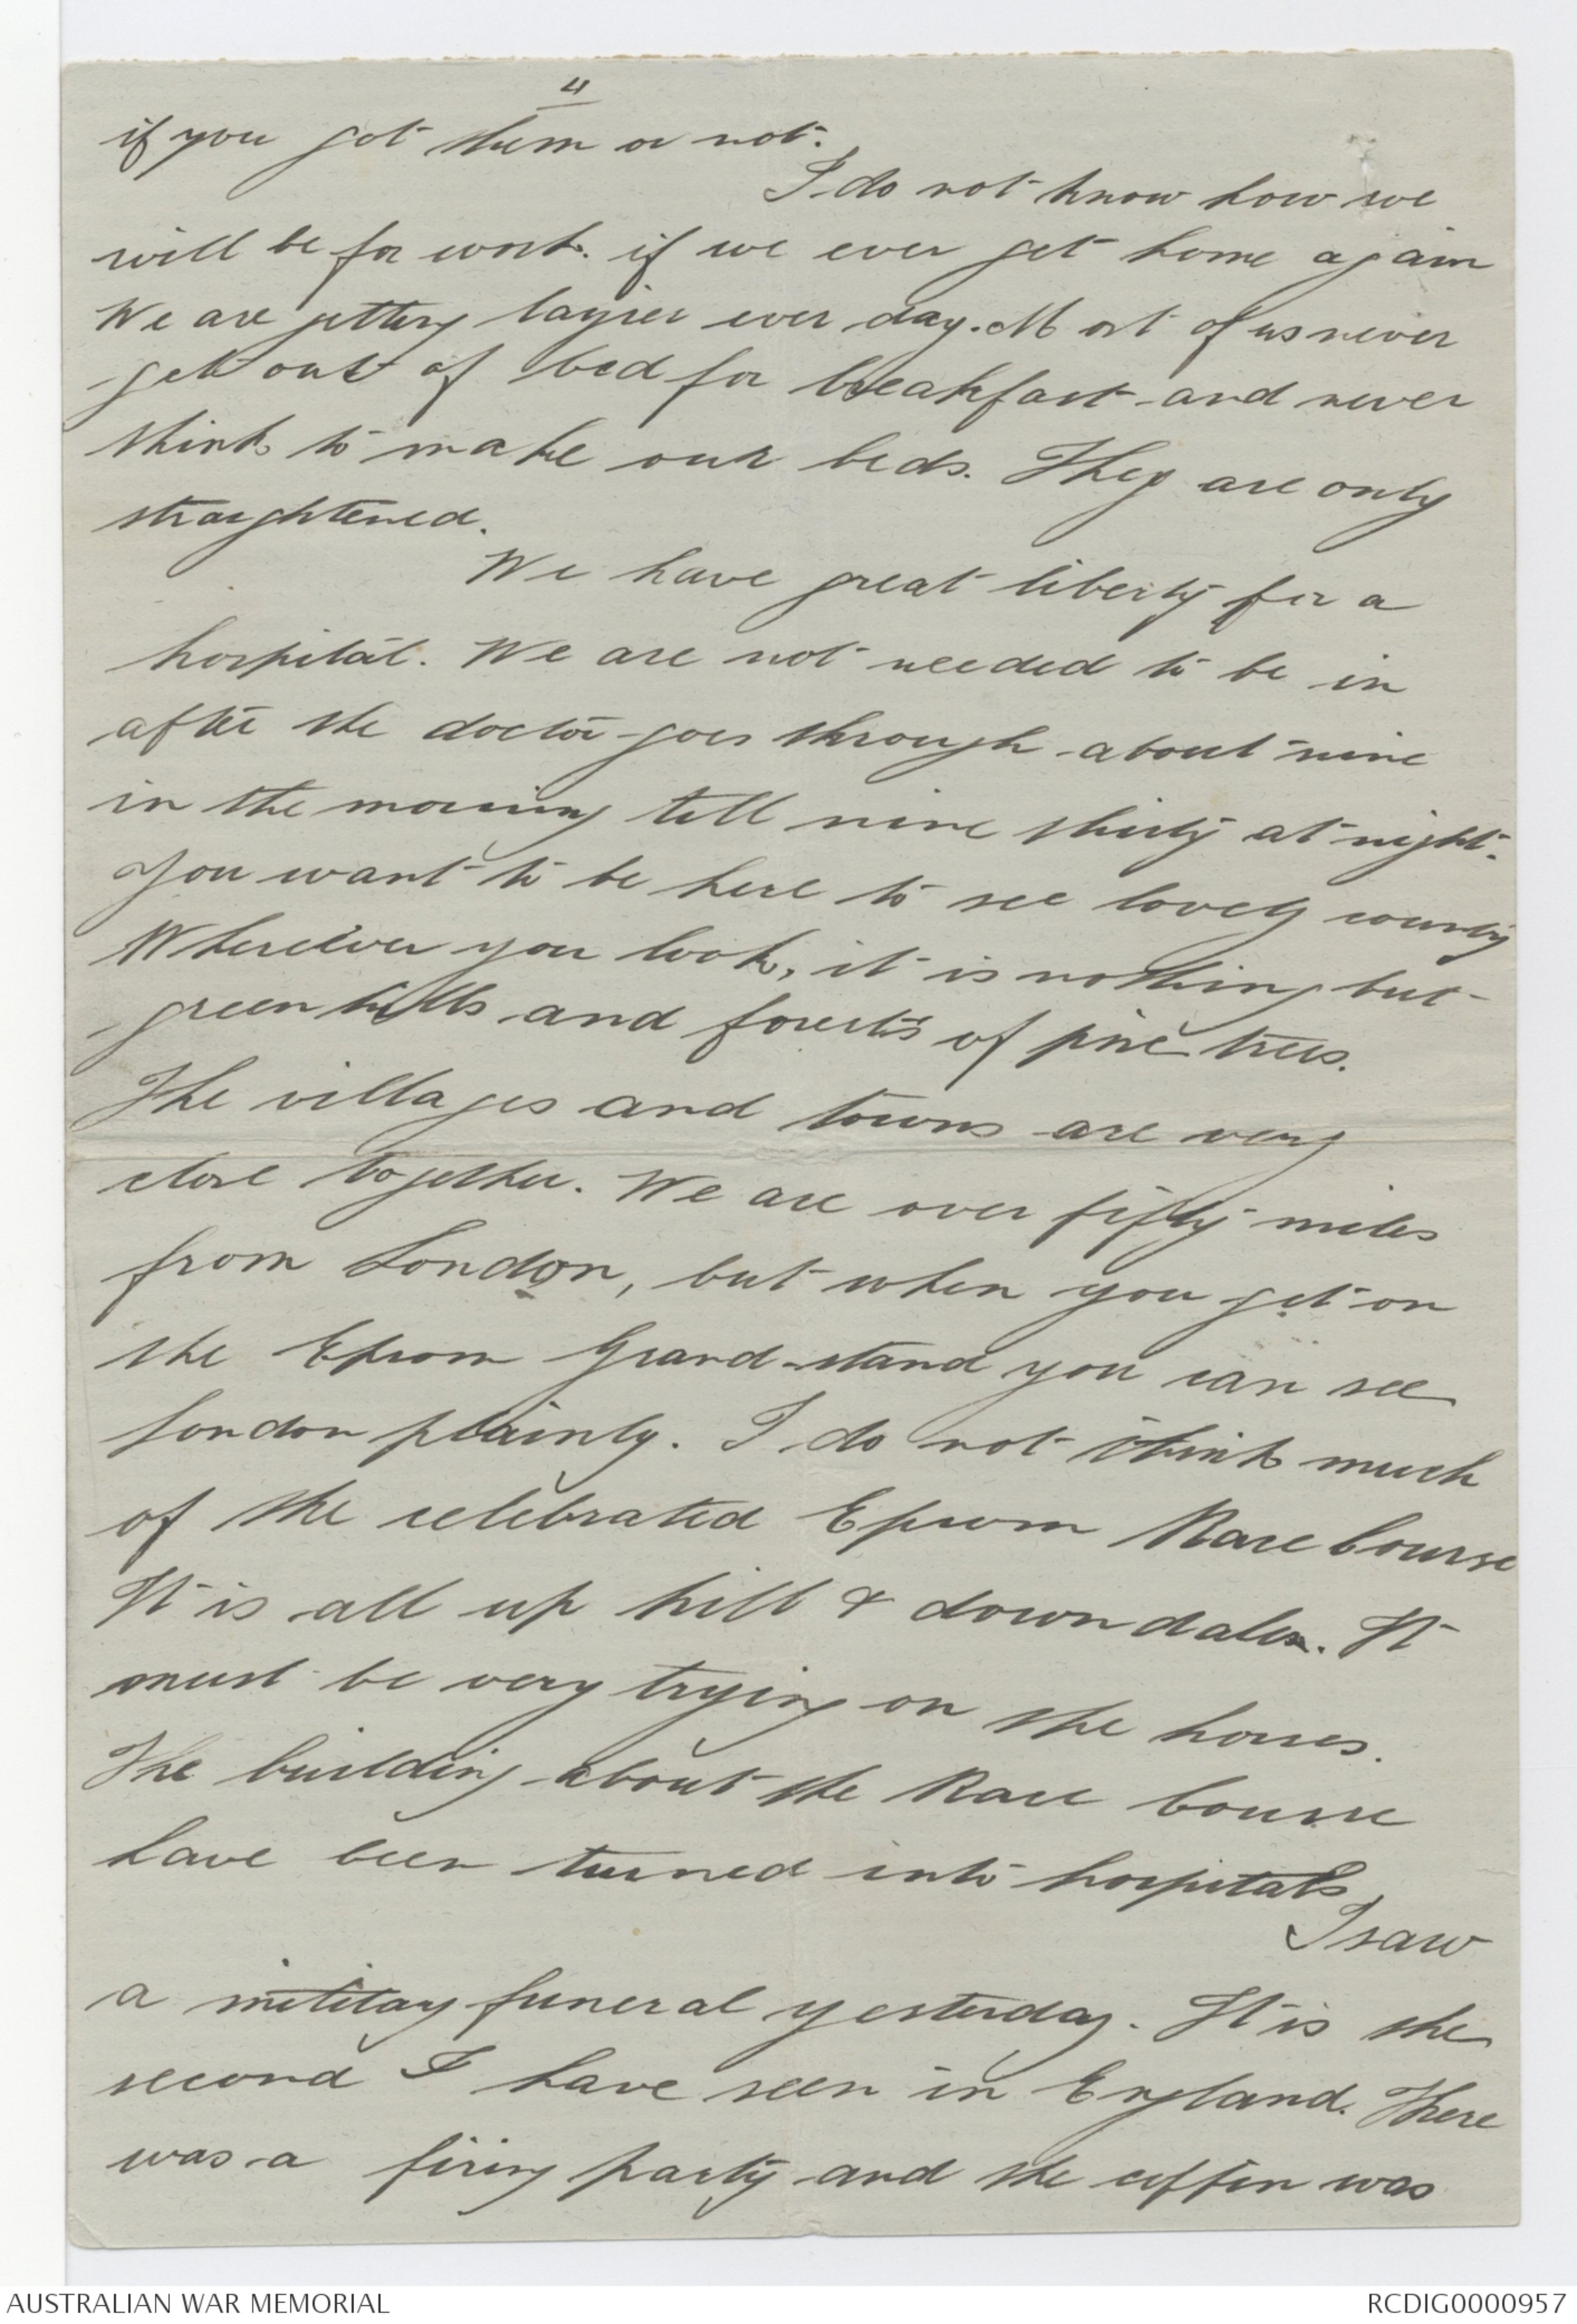 4
if you got them or not.
I do not know how we
will be for work. if we ever get home again
We are getting layier ever day. Most of us never
get out of bed for breakfast and never
think to make our beds. They are only
straightened.
We have great liberty for a
hospital. We are not needed to be in
after the doctor goes through about nine
in the morning till nine thirty at night.
You want to be here to see lovely country
Wherever you look, it is nothing but
green hills and forests of pine trees.
The villages and towns are very
close together. We are over fifty miles
from London, but when you get on
the Epsom Grand-stand you can see
London plainly. I do not think much
of the celebrated Epsom Race Course
It is all up hill & down dale. It
must be very trying on the horses.
The building about the Race Course
have been turned into hospitals,
I saw
a military funeral yesterday. It is the
second I have seen in England. There
was a firing party and the coffin was
AUSTRALIAN WAR MEMORIAL
RCDIG0000957